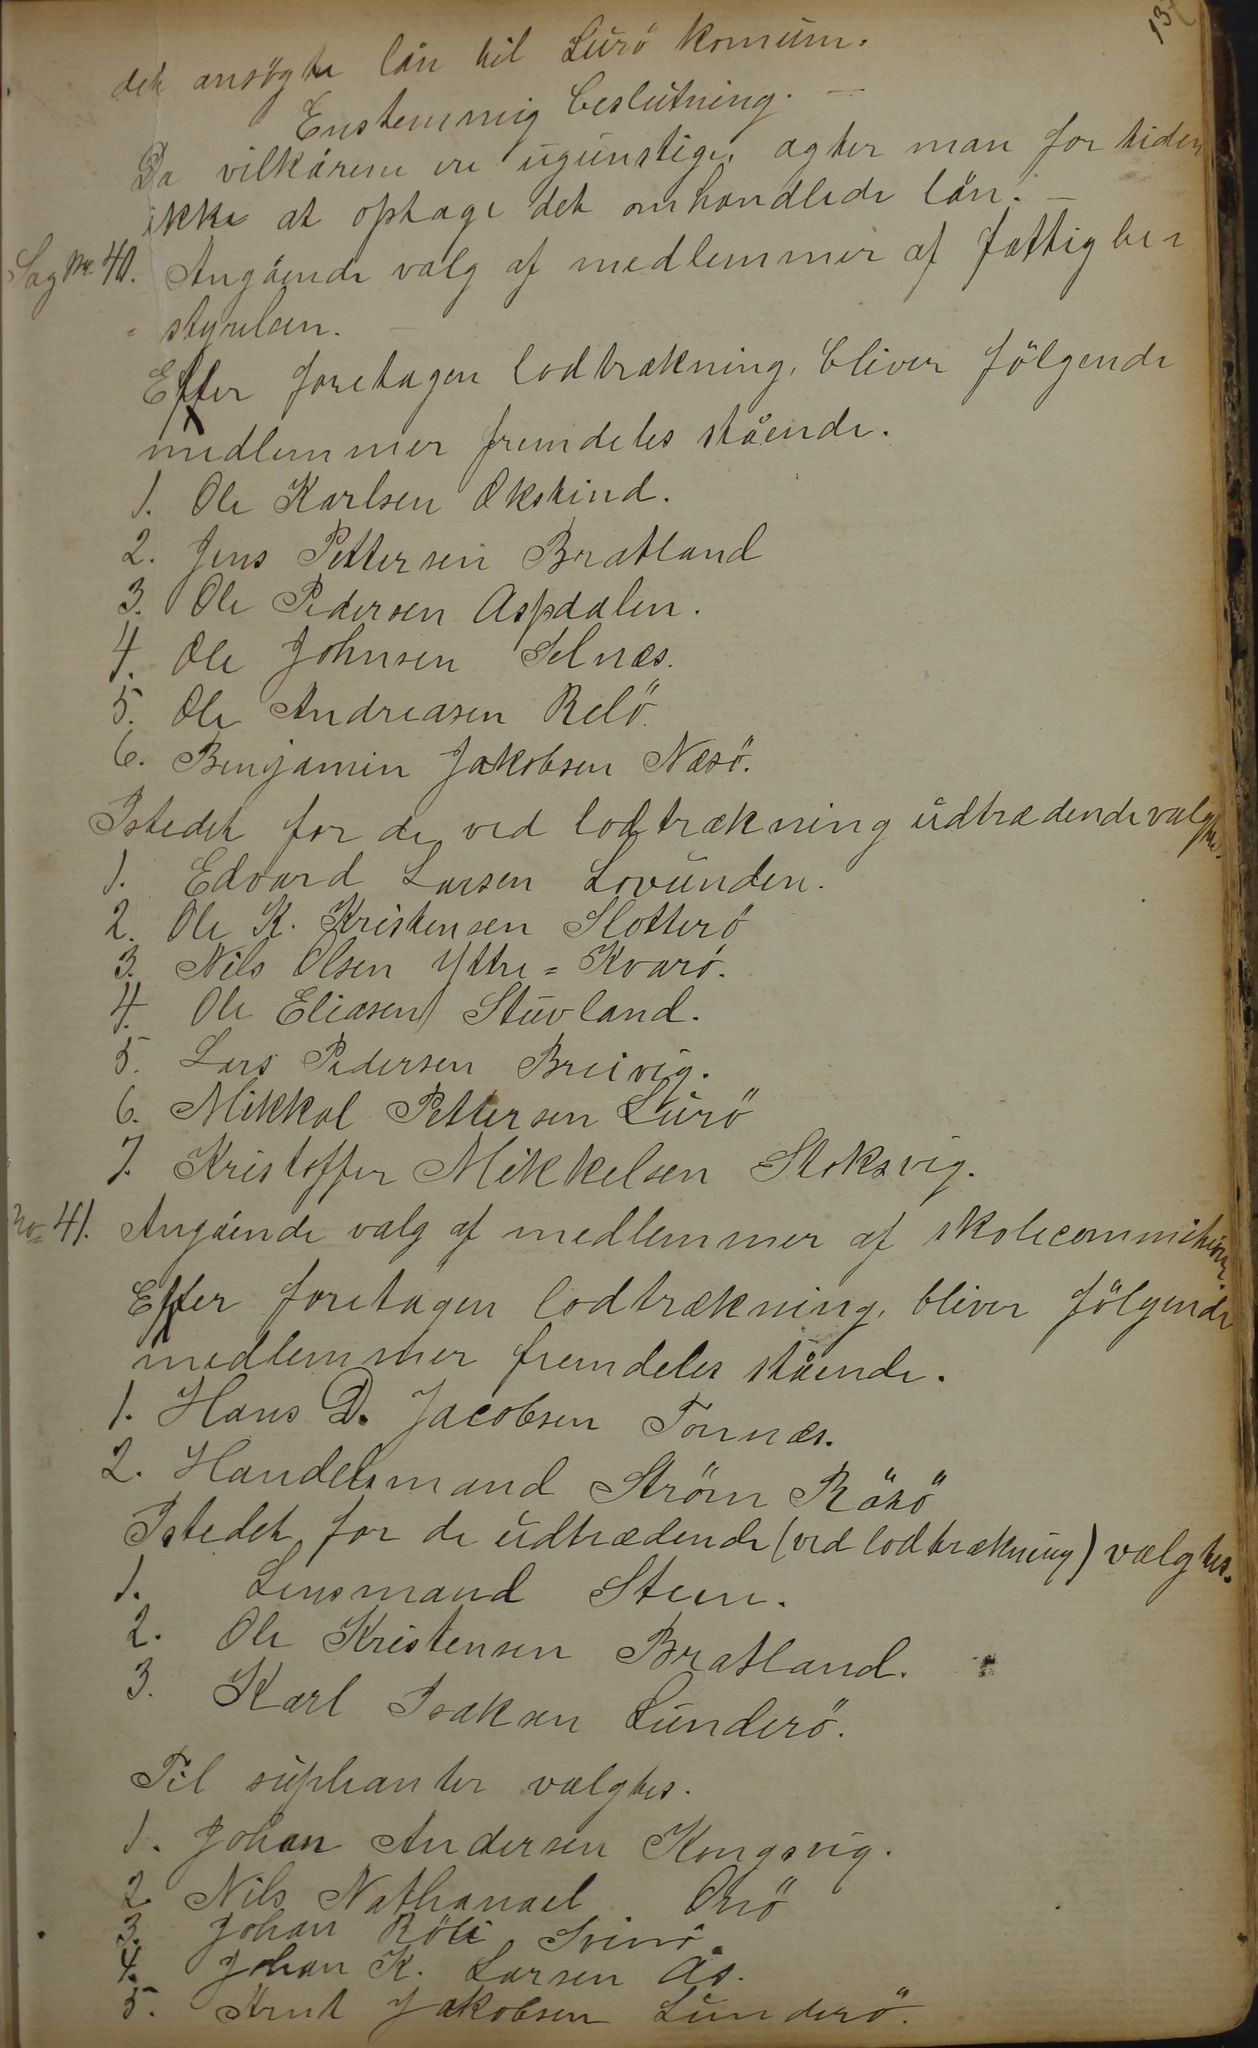 det ansögte lån til Lurö komum.
Enstemmig beslutning. —
Da vilkårene ere ugunstige, agter man for tiden
ikke at optage det omhandlede lån. —
Sag Nr. 40. Angående valg af medlemmer af fattigbe-
= styrelsen. —
Efter foretagen lodtrækning, bliver følgende
medlemmer fremdeles stående.
1. Ole Karlsen Økstind.
2. Jens Pettersen Bratland
3. Ole Pedersen Aspdalen.
4. Ole Johnsen Selnæs.
5. Ole Andreasen Relö.
6. Benjamin Jakobsen Næsö.
Istedet for de ved lodtrækning udtrædende valgtes.
1. Edvard Larsen Lovunden.
2. Ole K. Kristensen Slotterö
3. Nils Olsen Ytre = Kvarö.
4. Ole Eliasen Stuvland.
5. Lars Pedersen Breivig.
6. Mikkal Pettersen Lurö
7. Kristoffer Mikkelsen Stoksvig.
No 41. Angående valg af medlemmer af skolecommisionen.
Efter foretagen lodtrækning, bliver følgende
medlemmer fremdeles stående.
1. Hans D. Jacobsen Tonnæs.
2. Handelsmand Ström Råsö
Istedet for de udtrædende (ved lodtrækning) valgtes.
1. Lensmand Steen.
2. Ole Kristensen Bratland.
3. Karl Isaksen Lunderö.
Til suplianter valgtes.
1. Johan Andersen Kongsvig.
2. Nils Nathanael Onö
3. Johan Röli Svinö.
4. Johan K. Larsen Ås.
5. Arnt Jakobsen Lunderö.